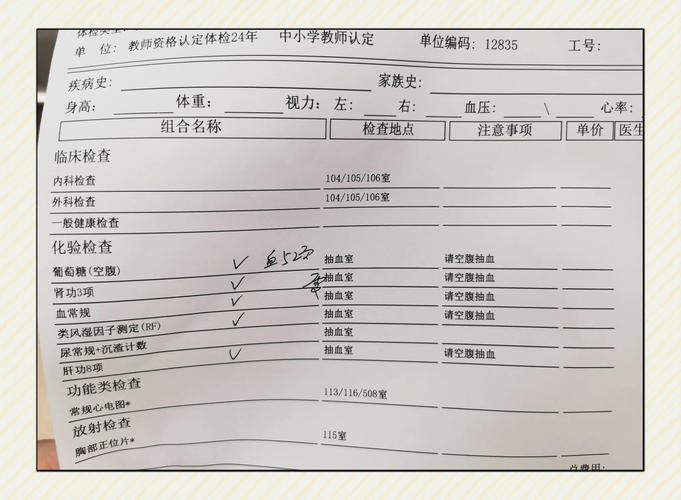 体检类型:
单 位: 教师资格认定体检24年 中小学教师认定 单位编码: 12835 工号:
疾病史: 家族史:
身高: 体重: 视力: 左: 右: 血压: \ 心率:
组合名称 检查地点 注意事项 单价 医生
临床检查
内科检查 104/105/106室
外科检查 104/105/106室
一般健康检查
化验检查
葡萄糖(空腹) ✓ 抽血室 请空腹抽血
肾功3项 ✓ 抽血室 请空腹抽血
血常规 ✓ 抽血室 请空腹抽血
类风湿因子测定(RF) ✓ 抽血室 请空腹抽血
尿常规+沉渣计数 抽血室
肝功8项 ✓ 抽血室 请空腹抽血
功能类检查
常规心电图* 113/116/508室
放射检查
胸部正位片* 115室
总费用: